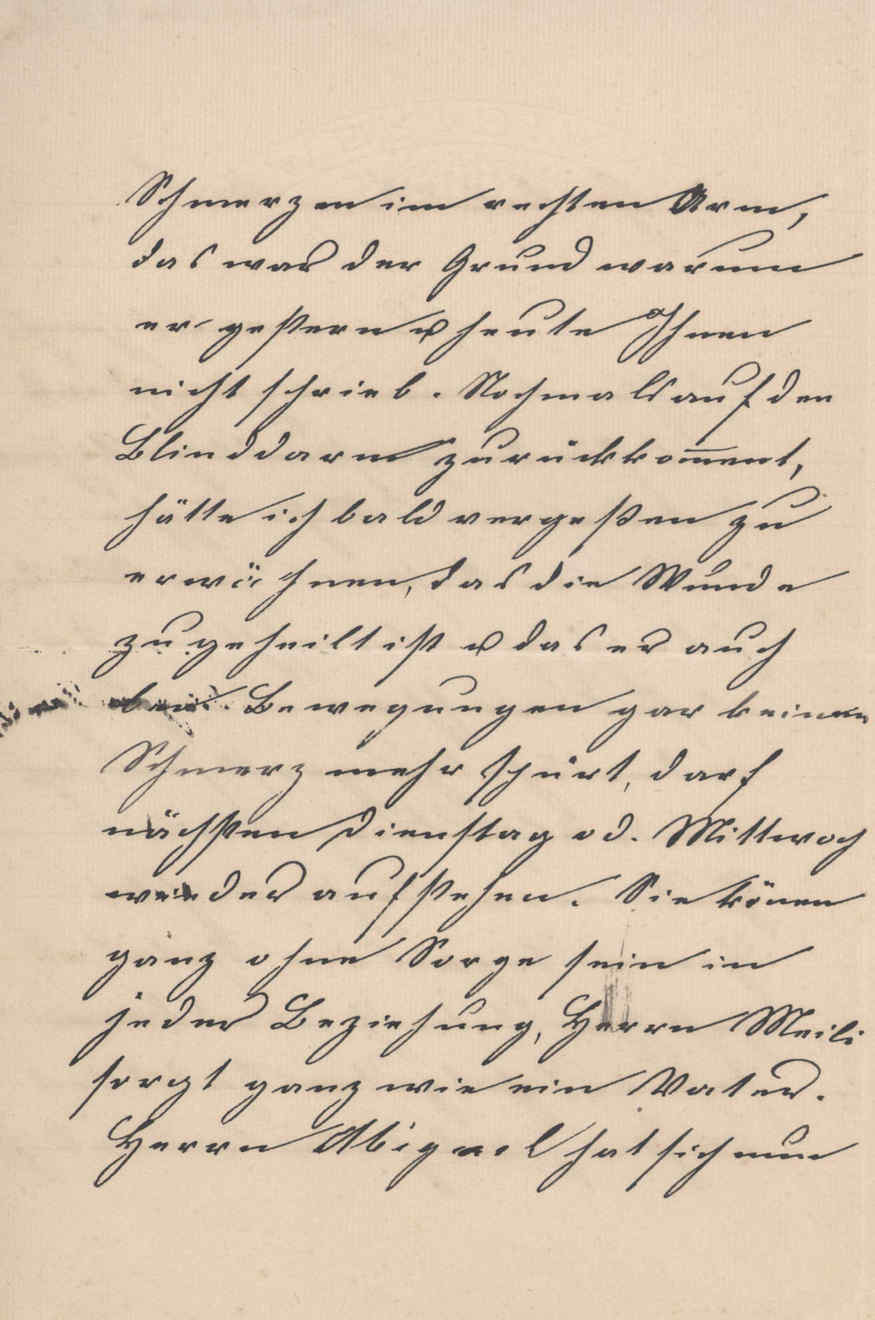 Schmerzen im rechten Arm,
das war der Grund warum
er gestern u heute Ihnen
nicht schrieb. Nochmals auf den
Blinddarm zurückkom̅ent,
hätte ich bald vergeßen zu
erwähnen, das die Wunde
zugeheilt ist u das er auch
bei Bewegungen gar keinen
Schmerz mehr spürt, darf
nächsten Dienstag od. Mittwoch
wieder aufstehen. Sie könen
ganz ohne Sorge sein in
jeder Beziehung, Herrn Meili
sorgt ganz wie ein Vater.
Herrn hat sich nun